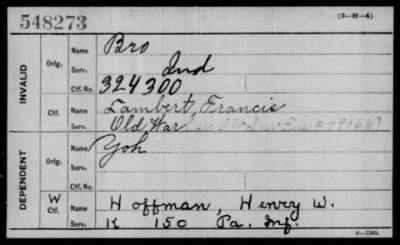 548273
(3-H-4)
INVALID
Orig.
Name Bro
Serv. Ind
Ctf.No. 324300
Ctf.
Name Lambert, Francis
Serv. Old War
DEPENDENT
Orig.
Name Yoh
Serv.
W
Ctf.
Name Hoffman, Henry W.
Serv. K 150 Pa. Inf.